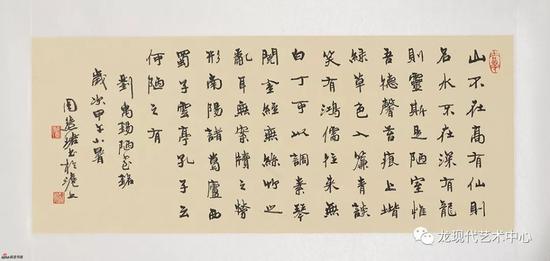 山不在高有仙則
名水不在深有龍
則靈斯是陋室惟
吾德馨苔痕上堦
綠草色入簾青談
笑有鴻儒往來無
白丁可以調素琴
閱金經無絲竹之
亂耳無案牘之勞
形南陽諸葛廬西
蜀子雲亭孔子云
何陋之有
劉禹錫陋室銘
歲次甲午小暑
周慧珺书於滬上
龙现代艺术中心